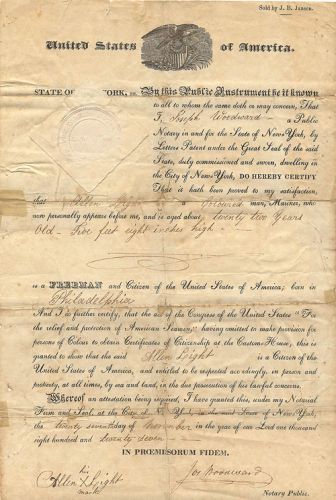 Sold by J. B. Jansen.
United States of America.
STATE OF YORK, ss. By this Public Instrument be it known
to all to whom the same doth or may concern, That
I, Joseph Woodward a Public
Notary in and for the State of New-York, by
Letters Patent under the Great Seal of the said
State, duly commissioned and sworn, dwelling in
the City of New-York, DO HEREBY CERTIFY
That it hath been proved to my satisfaction,
that Allen Light a Coloured man, Mariner, who
now personally appears before me, and is aged about twenty two Years
Old - Five feet eight inches high -
is a FREEMAN and Citizen of the United States of America; born in
Philadelphia
And I do further certify, that the act of the Congress of the United States "For
the relief and protection of American Seamen," having omitted to make provision for
persons of Colour to obtain Certificates of Citizenship at the Custom-House, this is
granted to show that the said Allen Light is a Citizen of the
United States of America, and entitled to be respected accordingly, in person and
property, at all times, by sea and land, in the due prosecution of his lawful concerns.
Whereof an attestation being required, I have granted this, under my Notarial
Form and Seal, at the City of N. York, in the said State of New-York,
the twenty seventh day of November in the year of our Lord one thousand
eight hundred and twenty seven -
IN PRŒMISORUM FIDEM.
his
Allen X Light
mark
Jos Woodward
Notary Public.